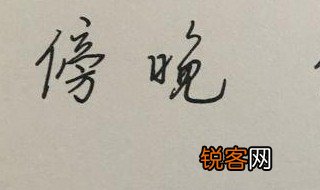 傍晚
锐客网